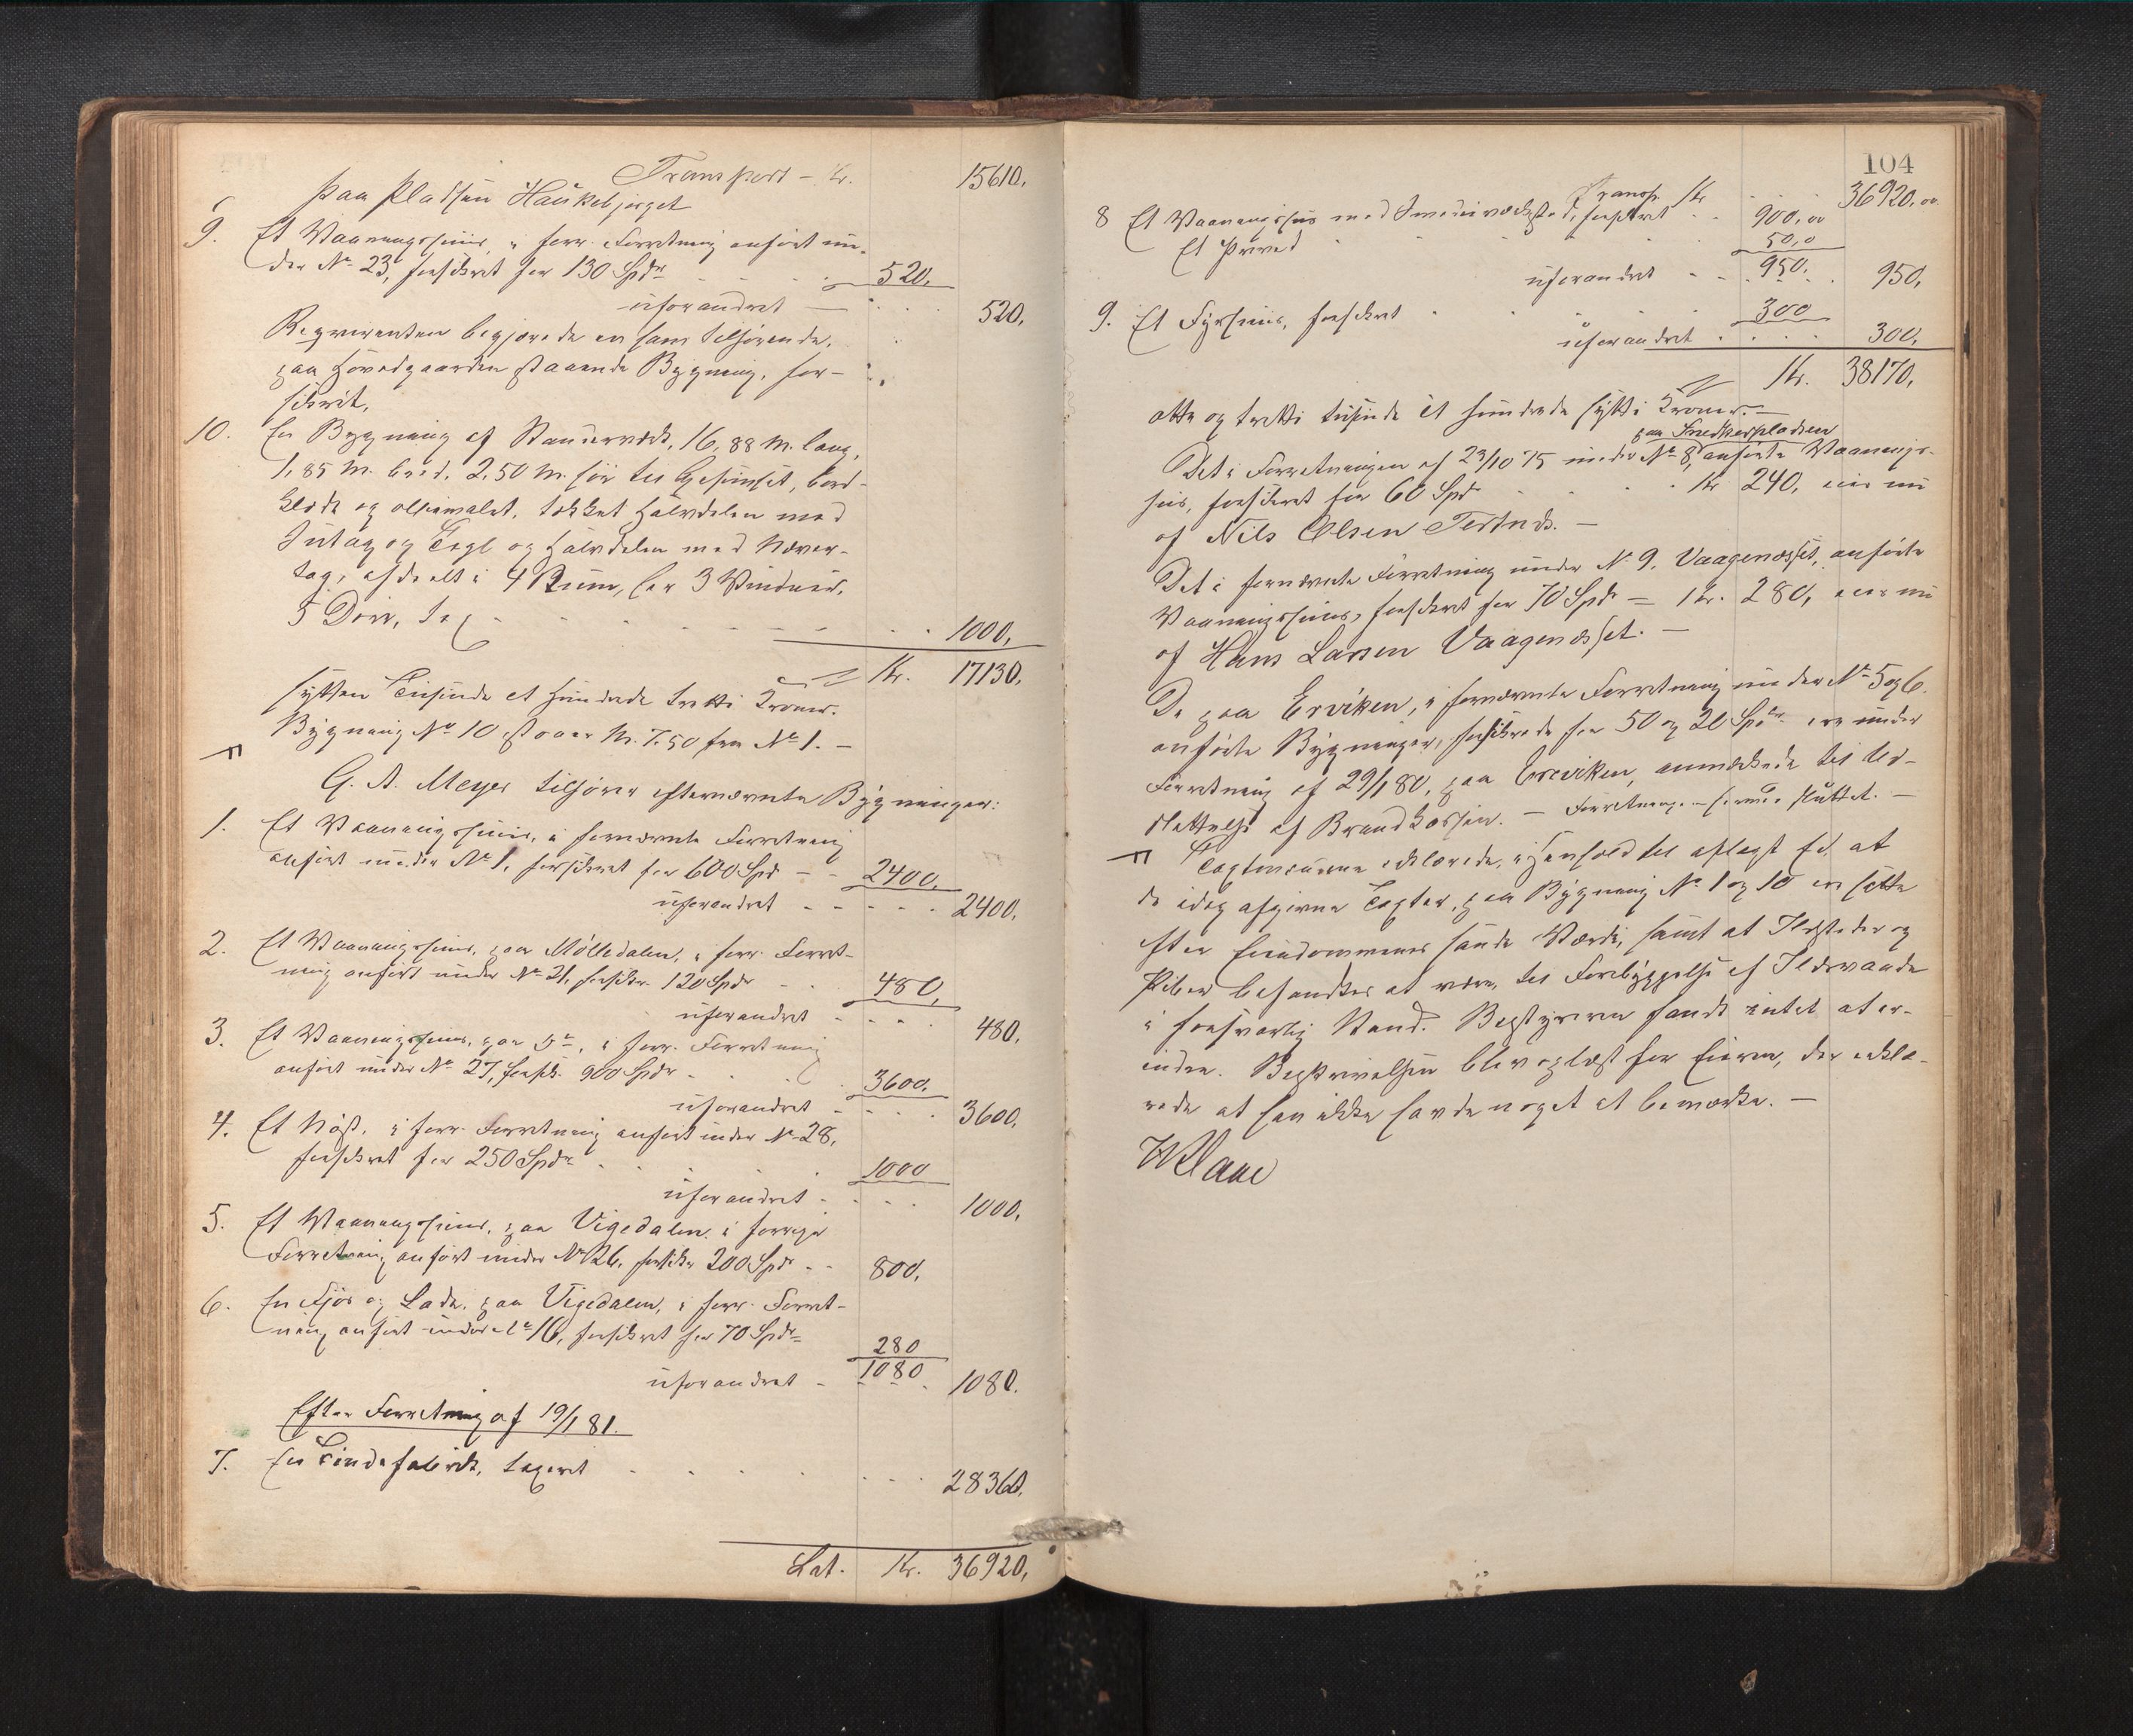 Transport – Kr. 15610,
Paa Pladsen Haukebjerget
9. Et Vaaningshuus, i forr. Forretning anført un-
der No 23, forsikret for 130 Spdr 520,
uforandret — 520,
Requirenten begjærede en ham tilhørende,
paa Hovedgaarden staaende Bygning, for-
sikret,
10. En Bygning af Stænderværk, 16,88 M. lang,
1,85 M. bred, 2,50 M. høi til Gesimset, bord-
klædt og oliemalet, tækket Halvdelen med
Sutag og Tagl og Halvdelen med Næver-
tag, afdeelt i 4 Rum, har 3 Vinduer,
5 Døre, tax 1000,
Kr. 17130,
sytten Tusinde et hundrede tretti Kroner.
Bygning No 10 staaer M. 7.50 fra No 1. –
G. A. Meyer tilhører efternævnte Bygninger:
1. Et Vaaningshuus, i fornævnte Forretning
anført under No 1, forsikret for 600 Spd – 2400,
uforandret 2400,
2. Et Vaaningshuus, paa Mølledalen, i forr. Forret-
ning anført under No 21, forsikr. 120 Spdr 480,
uforandret 480,
3. Et Vaaningshuus, paa Do, i forr. Forretning
anført under No 27, forsik. 900 Spdr 3600,
uforandret 3600,
4. Et Nøst, i forr. Forretning anført under No 28,
forsikret for 250 Spdr 1000
uforandret 1000,
5. Et Vaaningshuus, paa Vigedalen, i forrige
Forretning anført under No 26, forsikr 200 Spdr 800,
6. En Fjøs og Lade, paa Vigedalen, i forr. Forret-
ning anført under No 16, forsikret for 70 Spdr 280
1080
uforandret 1080.
Efter Forretning af 19/1 81.
7. En Tøndefabrik, taxeret 28360,
Lat. Kr. 36920,
104
Transp. Kr 36920,00
8 Et Vaaningshus med Smedeværksted, forsikret 900,00
Et Privet 50,0
uforandret 950, 950,
9. Et Fyrhuus, forsikret 300
uforandret 300,
Kr. 38170,
otte og tretti tusinde et hundrede sytti Kroner. –
paa Snedkerpladsen
Det i Forretningen af 23/10 75 under No 8, anførte Vaanings-
hus, forsikret for 60 Spd Kr 240, eies nu
af Nils Olsen Tertnæs. –
Det i fornævnte Forretning under No 9, Vaagenæsset, anførte
Vaaningshuus, forsikret for 70 Spdr = Kr. 280, eies nu
af Hans Larsen Vaagenæsset. –
De paa Erviken, i fornævnte Forretning under No 5 og 6.
anførte Bygninger, forsikrede for 50 og 20 Spdr ere under
Forretning af 29/1 80, paa Erviken, anmærkede til Ud-
slettelse af Brandkassen. – Forretningen hermed sluttet. –
Taxtmændene erklærede, i Henhold til aflagt Ed, at
de idag afgivne Taxter, paa Bygning No 1 og 10 ere satte
efter Eiendommenes sande Værdi, samt at Ildsteder og
Piber befandtes at være, til Forebyggelse af Ildsvaade
i forsvarlig Stand. Bestyreren fandt intet at er-
indre. Beskrivelsen blev oplæst for Eieren, der erklæ-
rede at han ikke havde noget at bemærke. –